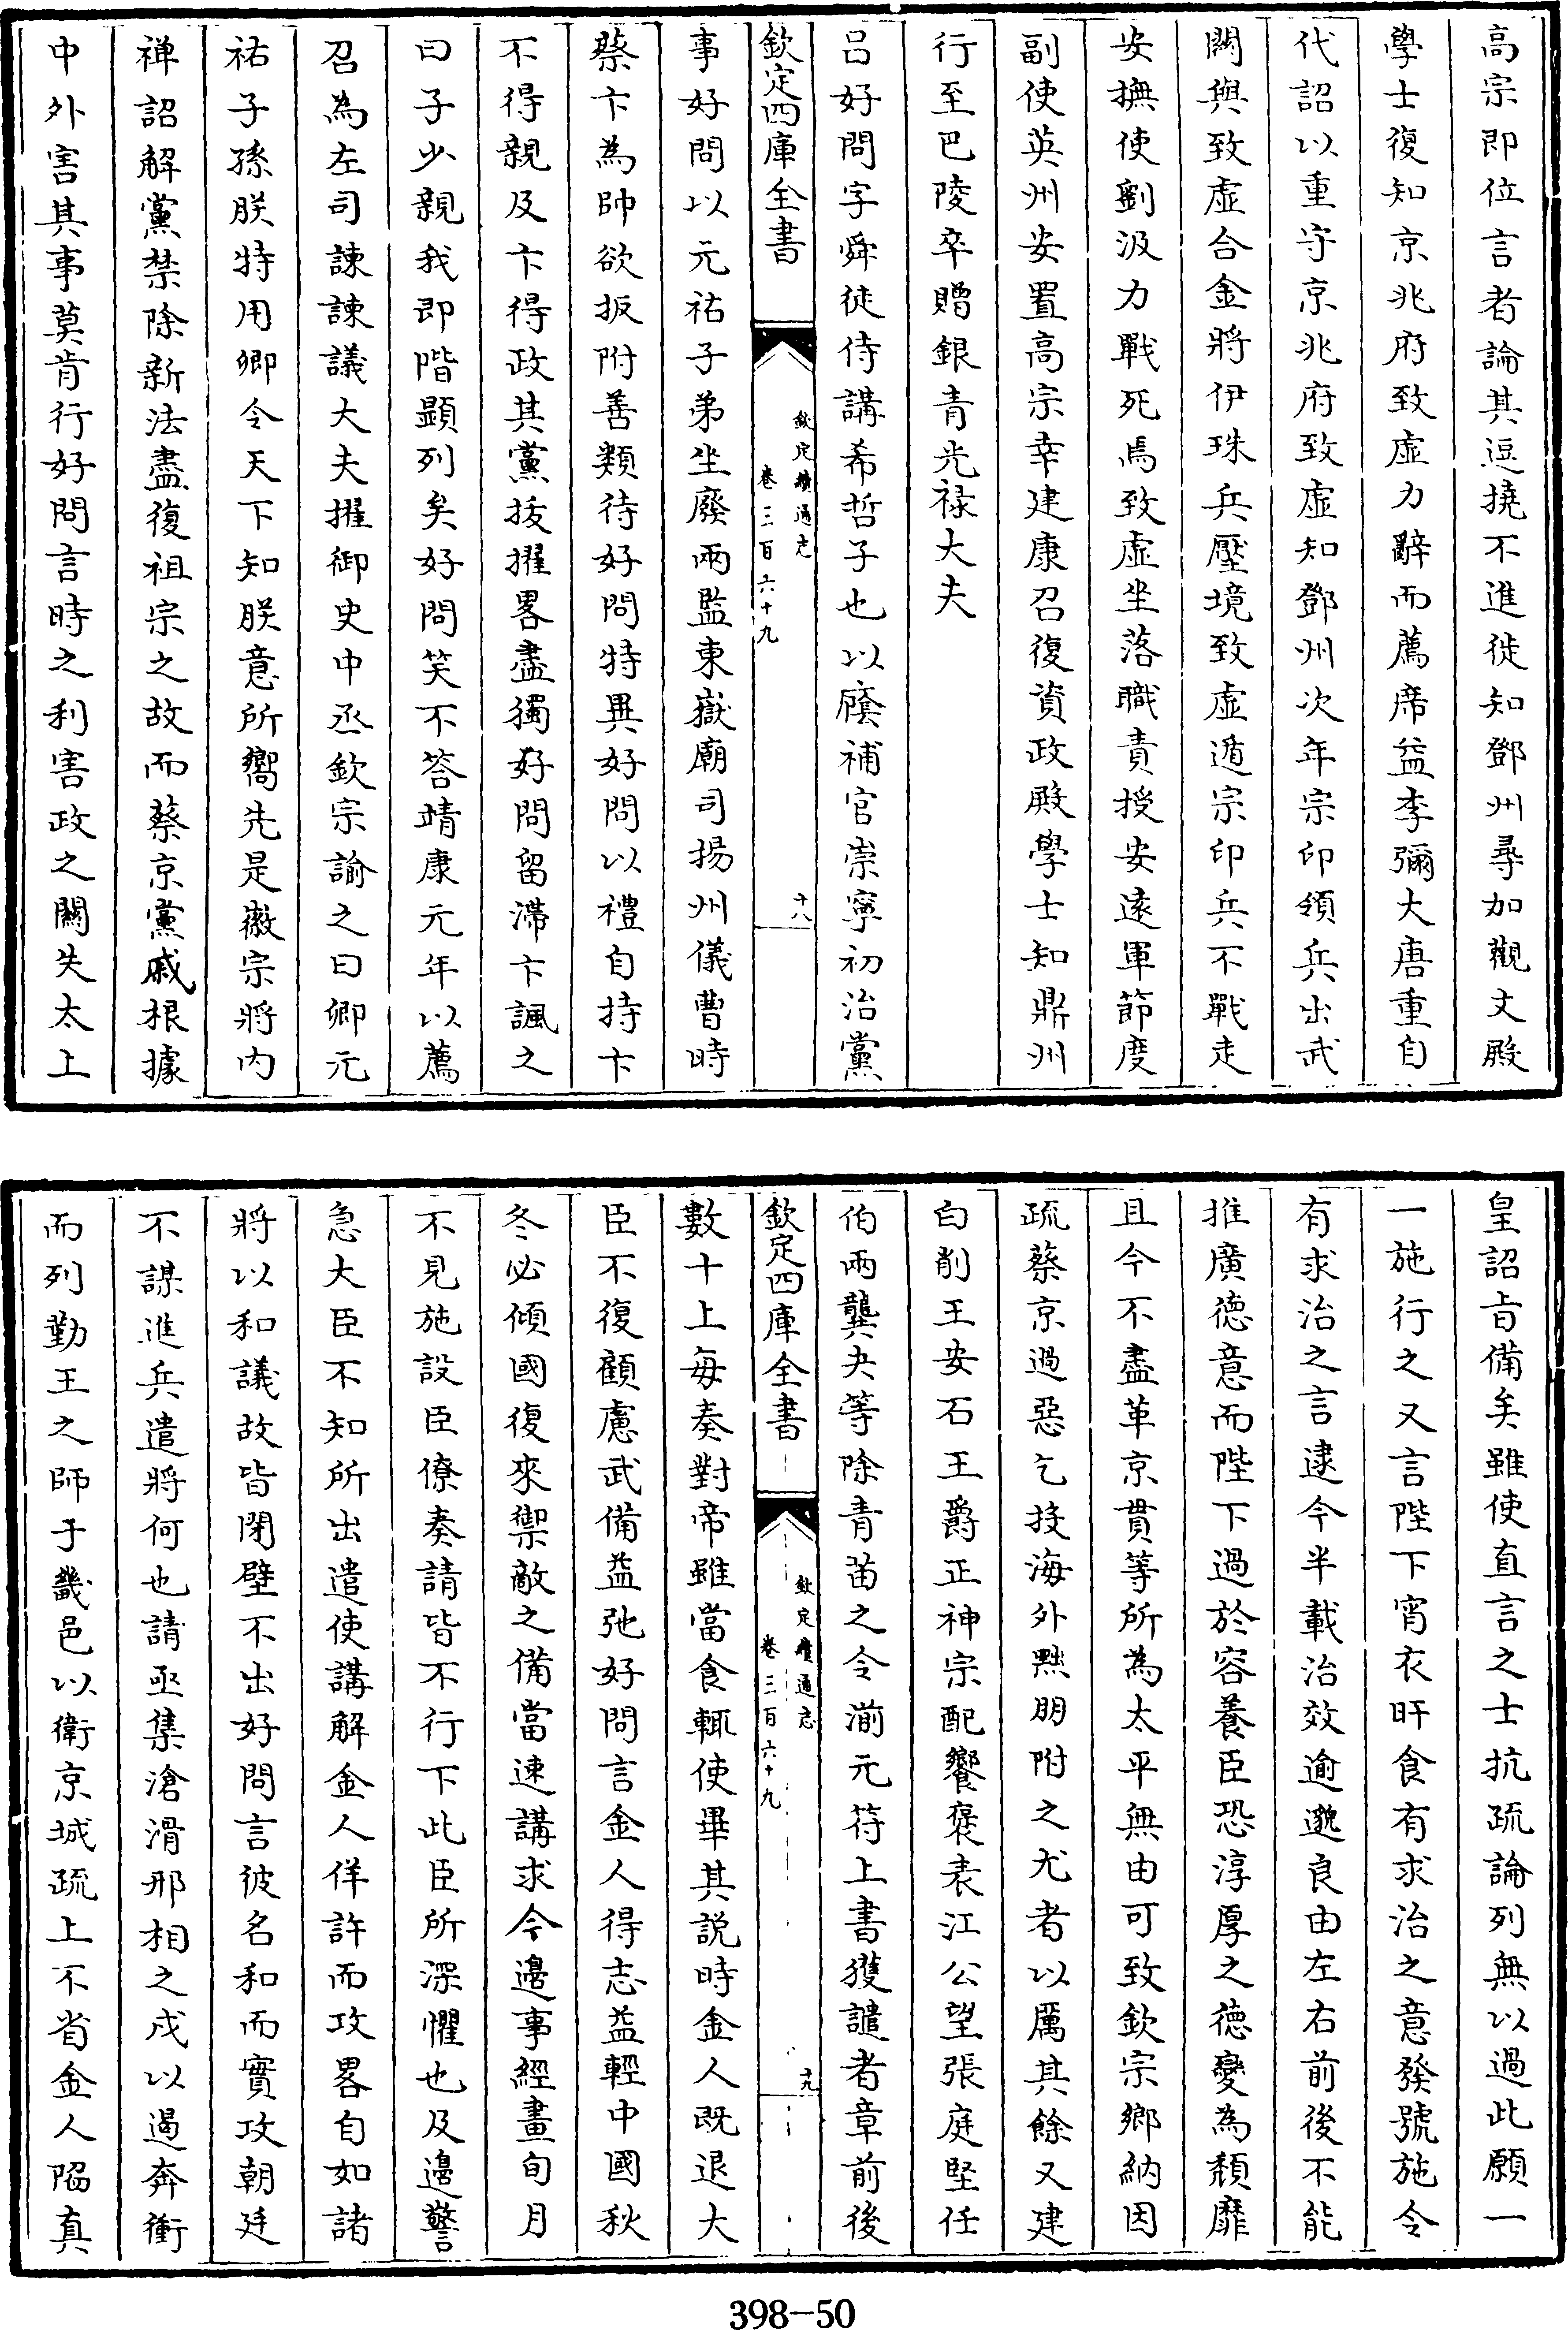 高宗即位言者論其逗撓不進徙知鄧州尋加觀文殿
學士復知京兆府致虛力辭而薦席益李彌大唐重自
代詔以重守京兆府致虛知鄧州次年宗印領兵出武
關與致虛合金將伊珠兵壓境致虛遁宗印兵不戰走
安撫使劉汲力戰死焉致虛坐落職責授安遠軍節度
副使英州安置高宗幸建康召復資政殿學士知鼎州
行至巴陵卒贈銀青光祿大夫
呂好問字舜徒侍講希哲子也以廕補官崇寧初治黨
欽定四庫全書
欽定續通志
卷三百六十九
十八
事好問以元祐子弟坐廢兩監東嶽廟司揚州儀曹時
蔡卞為帥欲扳附善類待好問特異好問以禮自持卞
不得親及卞得政其黨拔擢畧盡獨好問留滯卞諷之
曰子少親我即階顯列矣好問笑不答靖康元年以薦
召為左司諫諫議大夫擢御史中丞欽宗諭之曰卿元
祐子孫朕特用卿令天下知朕意所嚮先是徽宗將內
禪詔解黨禁除新法盡復祖宗之故而蔡京黨戚根據
中外害其事莫肯行好問言時之利害政之闕失太上
皇詔旨備矣雖使直言之士抗疏論列無以過此願一
一施行之又言陛下宵衣旰食有求治之意發號施令
有求治之言逮今半載治效逾邈良由左右前後不能
推廣德意而陛下過於容養臣恐淳厚之德變為頹靡
且今不盡革京貫等所為太平無由可致欽宗鄉納因
疏蔡京過惡乞投海外黜朋附之尤者以厲其餘又建
白削王安石王爵正神宗配饗褒表江公望張庭堅任
伯雨龔夬等除青苗之令湔元符上書獲譴者章前後
欽定四庫全書
欽定續通志
卷三百六十九
十九
數十上每奏對帝雖當食輒使畢其說時金人既退大
臣不復顧慮武備益弛好問言金人得志益輕中國秋
冬必傾國復來禦敵之備當速講求今邊事經畫旬月
不見施設臣僚奏請皆不行下此臣所深懼也及邊警
急大臣不知所出遣使講解金人佯許而攻畧自如諸
將以和議故皆閉壁不出好問言彼名和而實攻朝廷
不謀進兵遣將何也請亟集滄滑邢相之戍以遏奔衝
而列勤王之師于畿邑以衛京城疏上不省金人陷真
398-50